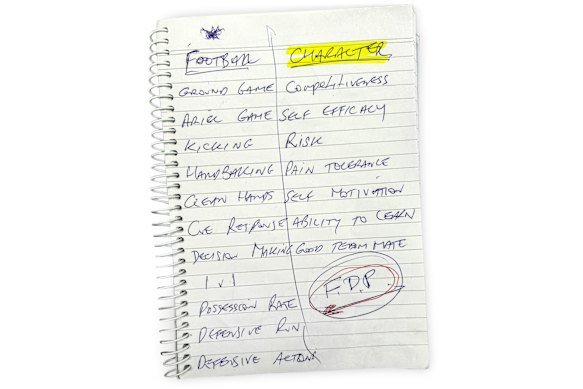 FOOTBALL CHARACTER
GROUND GAME COMPETITIVENESS
ARIEL GAME SELF EFFICACY
KICKING RISK
HANDBALLING PAIN TOLERANCE
CLEAN HANDS SELF MOTIVATION
CUE RESPONSE ABILITY TO LEARN
DECISION MAKING GOOD TEAM MATE
1 v 1
F.D.P.
POSSESSION RATE
DEFENSIVE RUN
DEFENSIVE ACTION